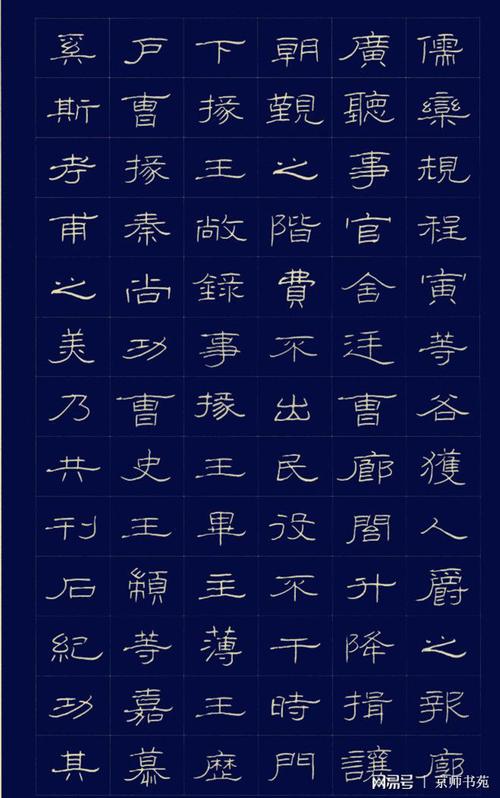 儒欒規程寅等各獲人爵之報廓
廣聽事官舍廷曹廊閣升降揖讓
朝覲之階費不出民役不干時門
下掾王敞錄事掾王畢主薄王歷
戶曹掾秦尚功曹史王顓等嘉慕
奚斯考甫之美乃共刊石紀功其
网易号 | 京师书苑